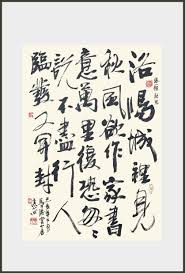 張籍秋思
洛陽城裡見
秋風欲作家書
意萬重復恐匆匆
說不盡行人
臨發又開封